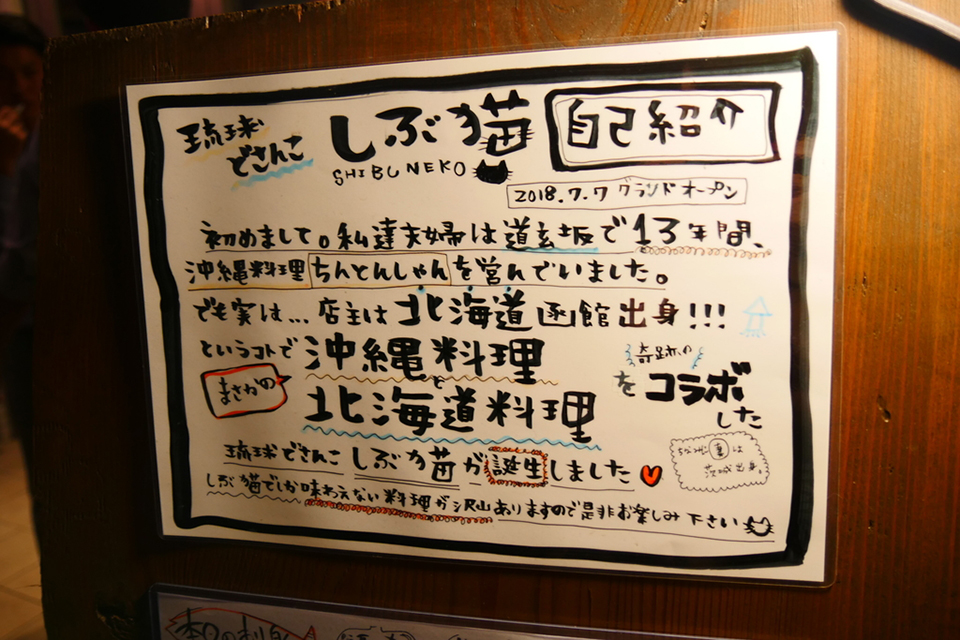 琉球
どさんこ
しぶ猫
SHIBUNEKO
自己紹介
2018.7.7 グランドオープン
初めまして。私達夫婦は道玄坂で13年間、
沖縄料理ちんとんしゃんを営んでいました。
でも実は…店主は北海道函館出身!!!
というコトで
まさかの
沖縄料理
と
北海道料理
奇跡の
を コラボ
した
琉球どさんこ しぶ猫が誕生しました
ちなみに妻は
茨城出身。
しぶ猫でしか味わえない料理が沢山ありますので是非お楽しみ下さい
本日の刺身